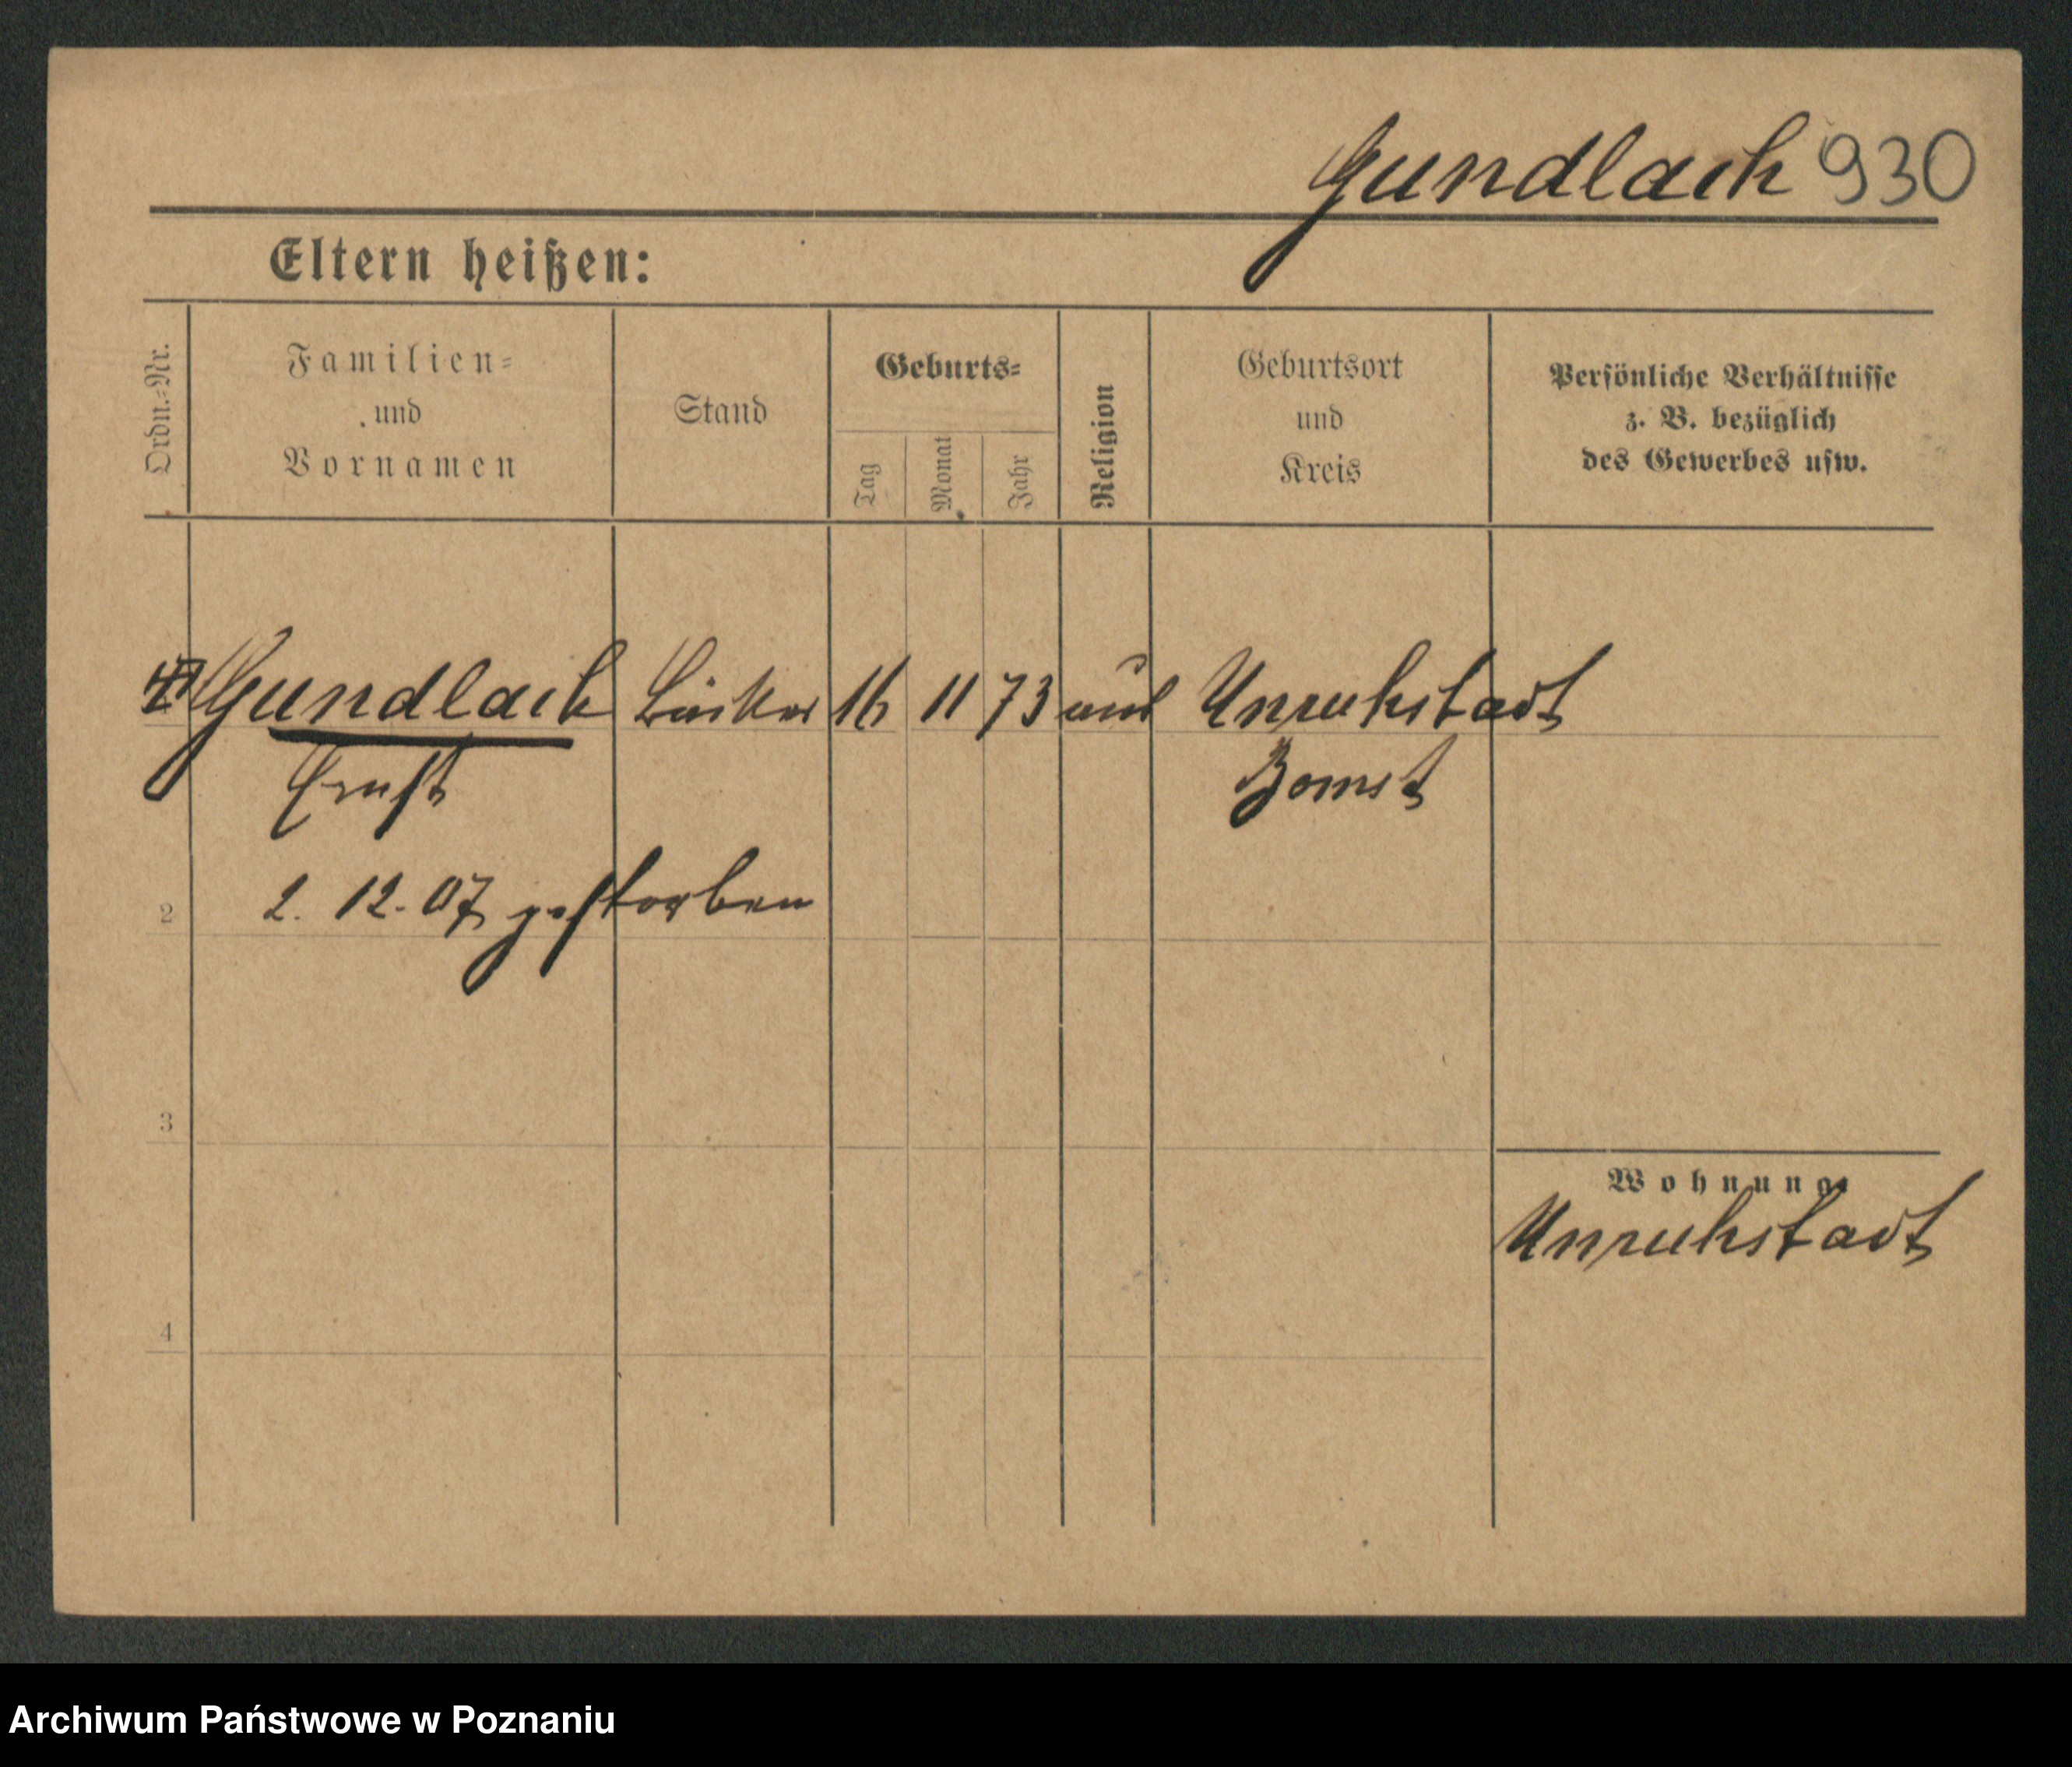 Gundlach 930
Eltern heißen:
Ordn.-Nr.
Familien-
und
Vornamen
Stand
Geburts-
Tag
Monat
Jahr
Religion
Geburtsort
und
Kreis
Persönliche Verhältnisse
z. B. bezüglich
des Gewerbes usw.
Gundlach Bäcker 16 11 73 Unruhstadt
Ernst Bomst
2 2. 12. 07 gestorben
3
Wohnung
Unruhstadt
4
Archiwum Państwowe w Poznaniu